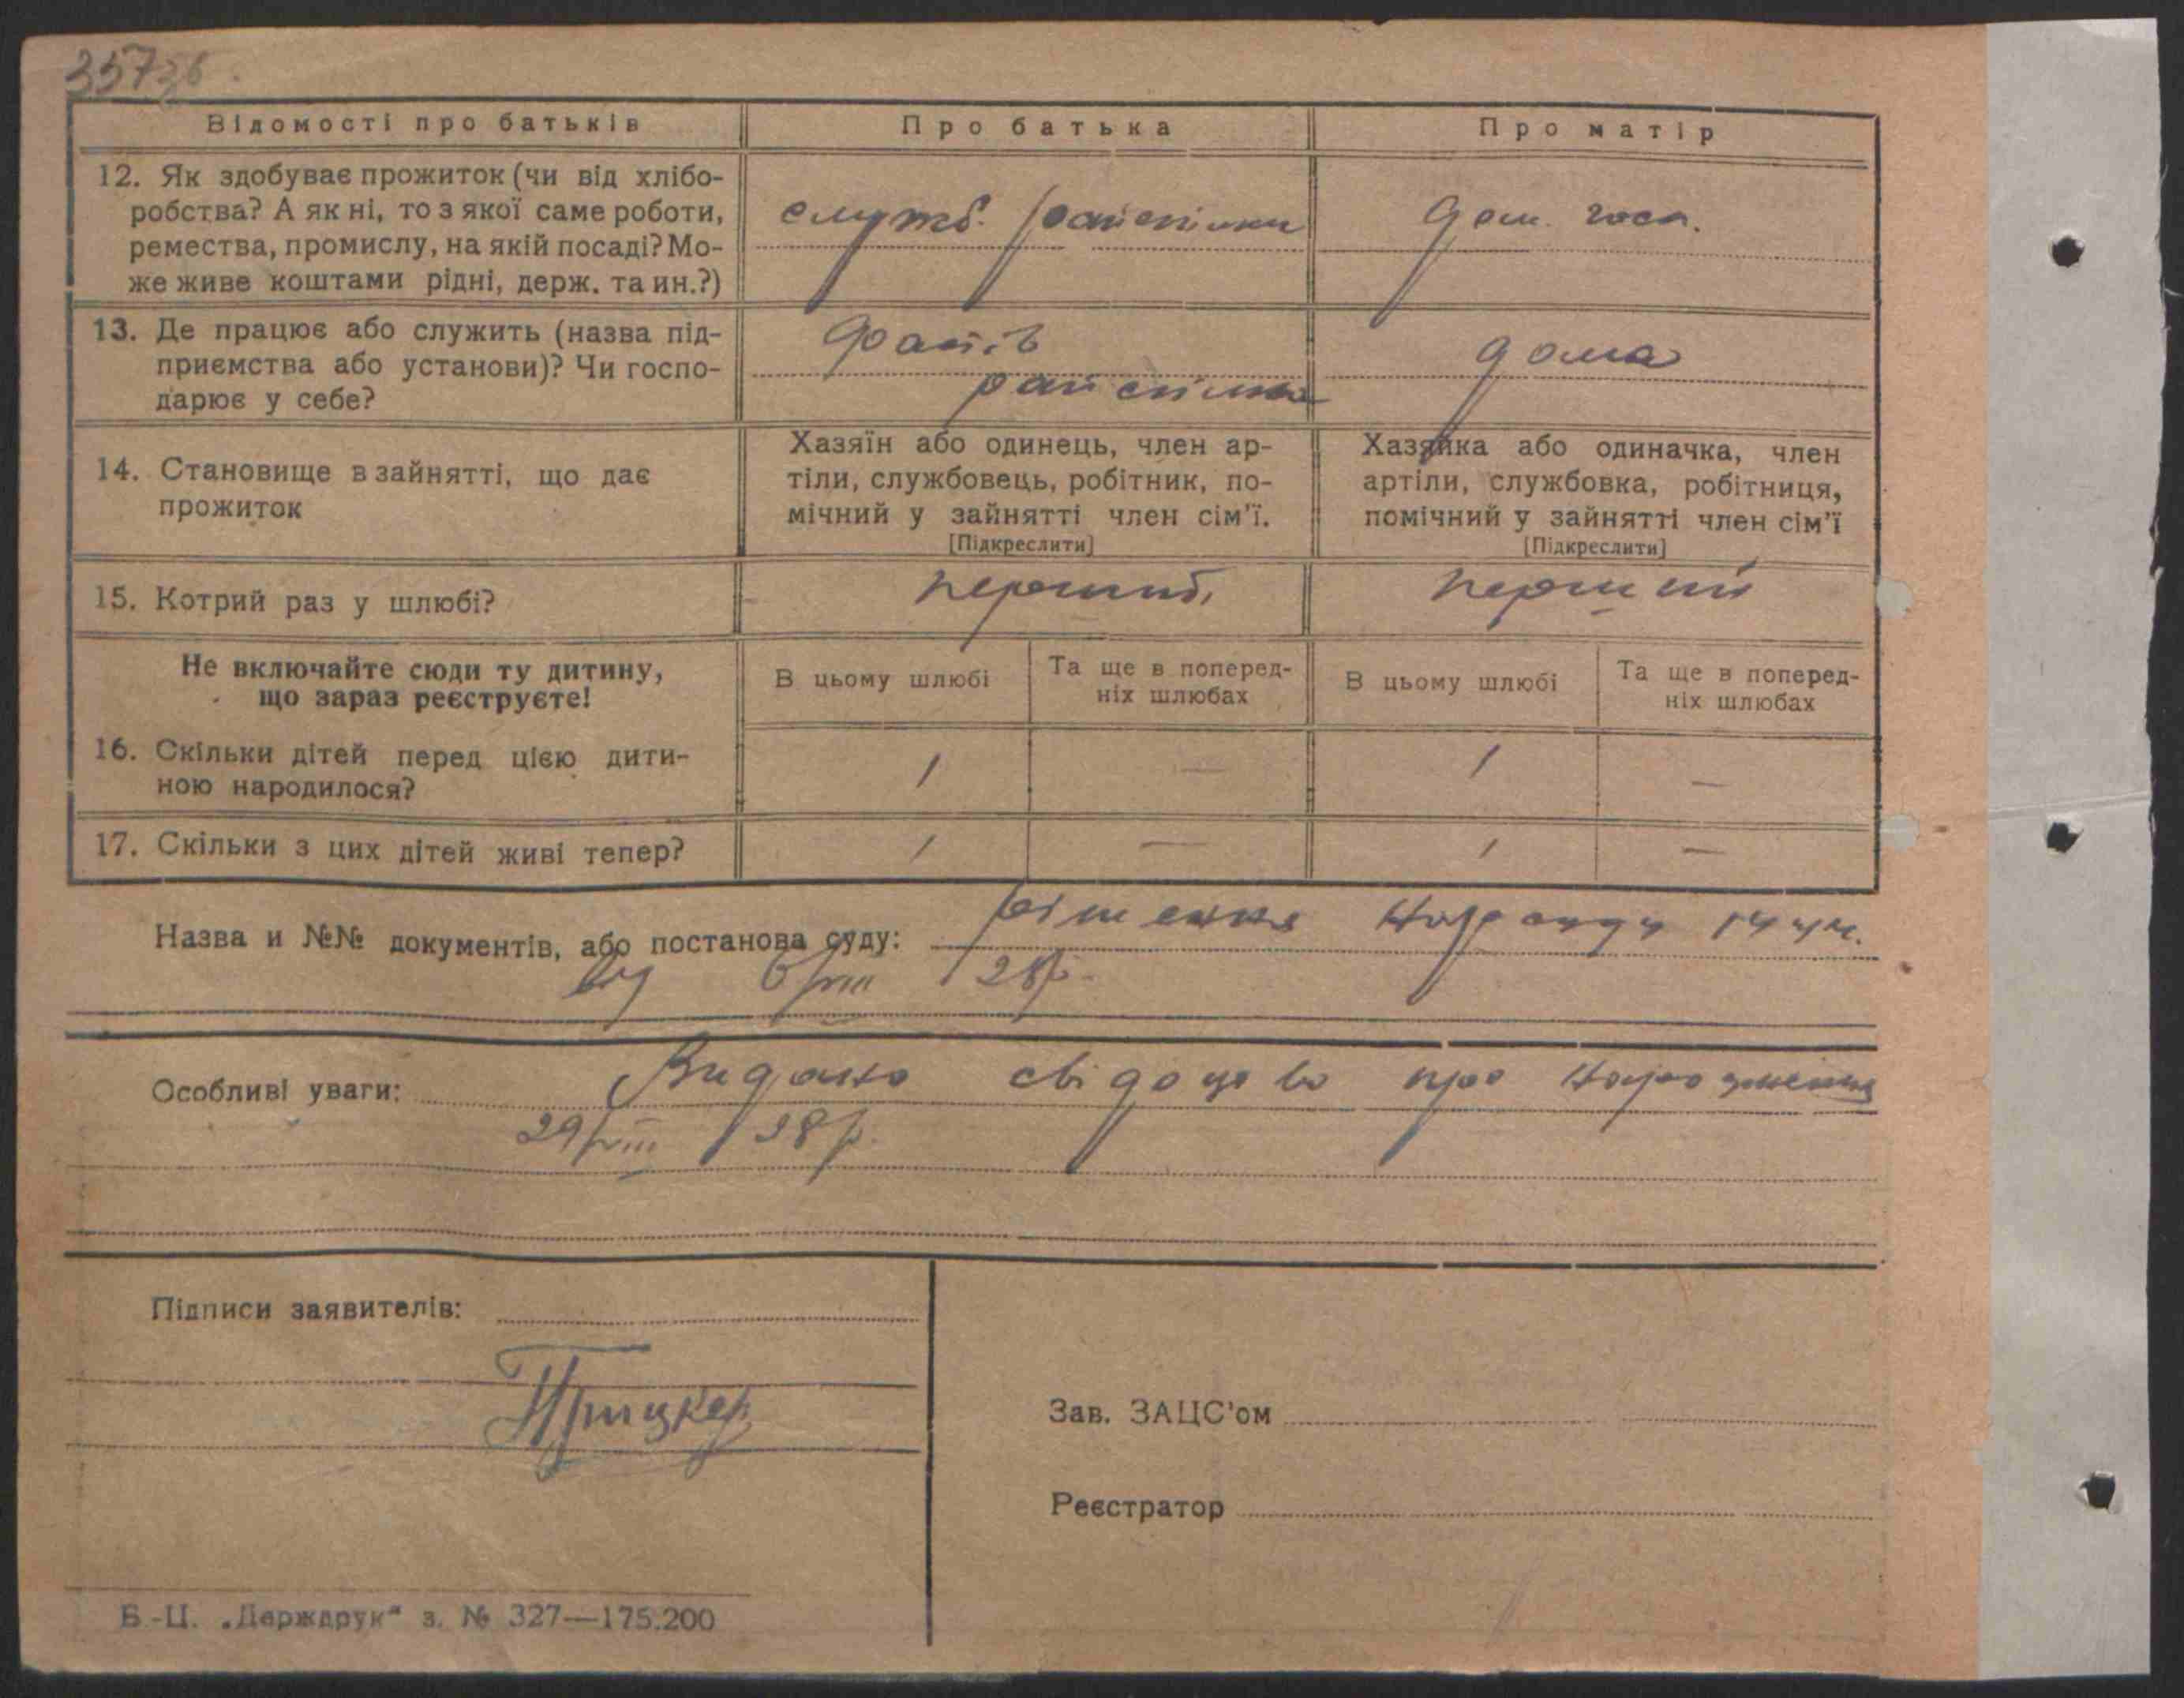 Відомості про батьків
Про батька
Про матір
12. Як здобуває прожиток (чи від хлібо-
робства? А як ні, то з якої саме роботи,
ремества, промислу, на якій посаді? Мо-
же живе коштами рідні, держ. та ин.?)
служб. райспілки
дом. госп.
13. Де працює або служить (назва під-
приємства або установи)? Чи госпо-
дарює у себе?
Фастів
райспілка
дома
14. Становище в зайнятті, що дає
прожиток
Хазяїн або одинець, член ар-
тіли, службовець, робітник, по-
мічний у зайнятті член сім'ї.
[Підкреслити]
Хазяйка або одиначка, член
артіли, службовка, робітниця,
помічний у зайнятті член сім'ї
[Підкреслити]
15. Котрий раз у шлюбі?
перший
перший
Не включайте сюди ту дитину,
що зараз реєструєте!
В цьому шлюбі
Та ще в поперед-
ніх шлюбах
В цьому шлюбі
Та ще в поперед-
ніх шлюбах
16. Скільки дітей перед цією дити-
ною народилося?
1 — 1 —
17. Скільки з цих дітей живі тепер?
1 — 1 —
Назва и №№ документів, або постанова суду: рішення Нарсуду 14
від 6/VIII 28р.
Особливі уваги: Видано свідоцтво про народження
29/VIII 28р.
Підписи заявителів:
Прицкер
Зав. ЗАЦС'ом
Реєстратор
Б.-Ц. „Держдрук“ з. № 327—175.200